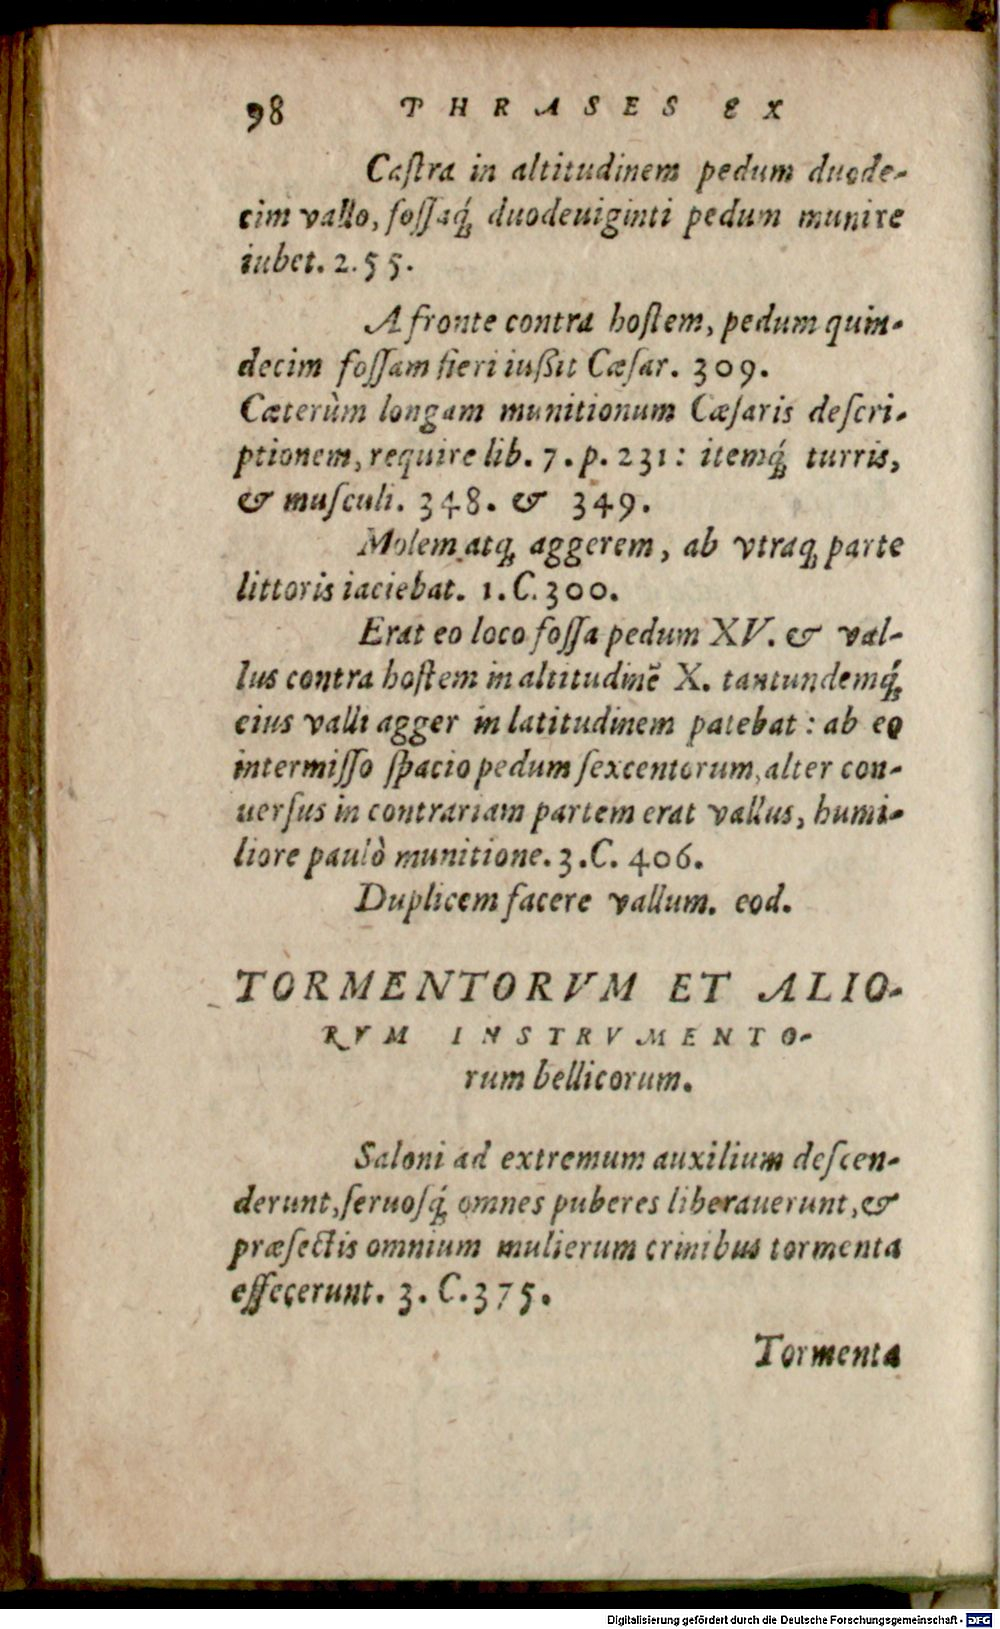 98 PHRASES EX
Caſtra in altitudinem pedum duode-
cim vallo, foſſaq́ꝫ duodeuiginti pedum munire
iubet. 2.55.
A fronte contra hoſtem, pedum quin-
decim foſſam fieri iußit Cæſar. 309.
Cæterùm longam munitionum Cæſaris deſcri-
ptionem, require lib. 7. p. 231: itemq́ꝫ turris,
& muſculi. 348. & 349.
Molem atqꝫ aggerem, ab vtraqꝫ parte
littoris iaciebat. 1.C.300.
Erat eo loco foſſa pedum XV. & val-
lus contra hoſtem in altitudinẽ X. tantundemq́ꝫ
eius valli agger in latitudinem patebat: ab eo
intermiſſo ſpacio pedum ſexcentorum, alter con-
uerſus in contrariam partem erat vallus, humi-
liore paulò munitione. 3.C. 406.
Duplicem facere vallum. eod.
TORMENTORVM ET ALIO-
RVM INSTRVMENTO-
rum bellicorum.
Saloni ad extremum auxilium deſcen-
derunt, ſeruoſq́ꝫ omnes puberes liberauerunt, &
præſectis omnium mulierum crinibus tormenta
effecerunt. 3. C.375.
Tormenta
Digitalisierung gefördert durch die Deutsche Forschungsgemeinschaft - DFG